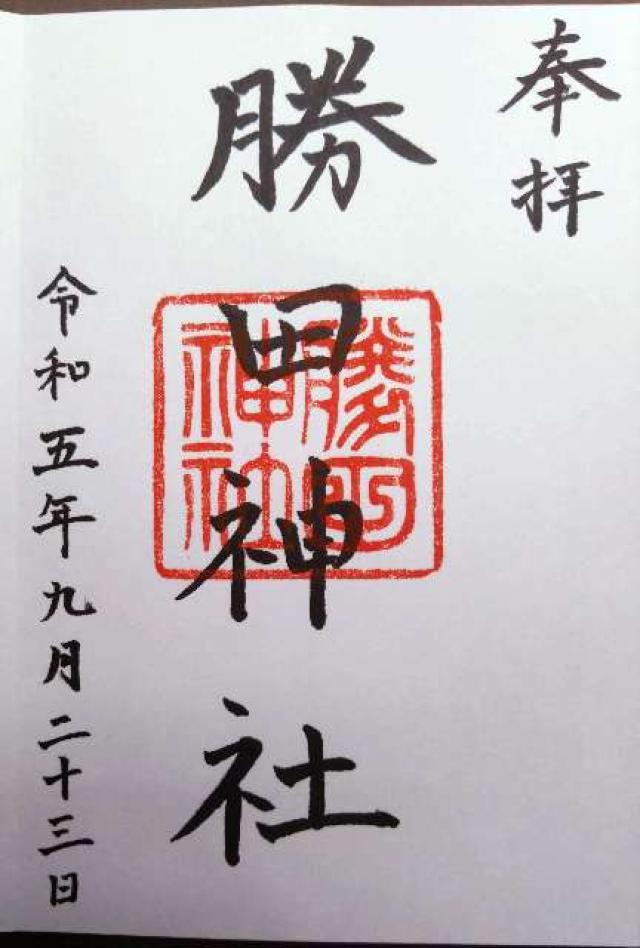 奉拝
勝田神社
勝田神社
令和五年九月二十三日